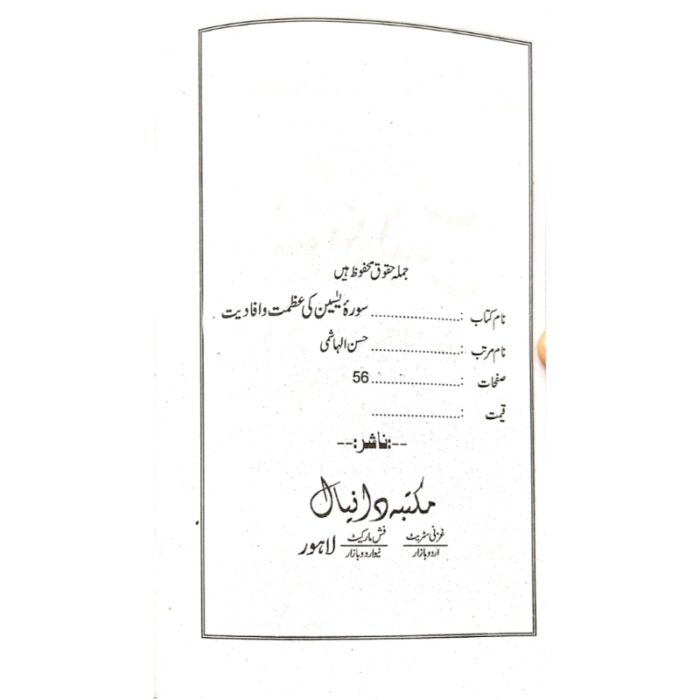 جملہ حقوق محفوظ ہیں
نام کتاب :...................... سورۂ یٰسین کی عظمت و افادیت
نام مرتب :...................... حسن الہاشمی
صفحات :...................... 56
قیمت :......................
--:ناشر:--
مکتبہ دانیال
غزنی سٹریٹ اردو بازار فش مارکیٹ نیو اردو بازار لاہور